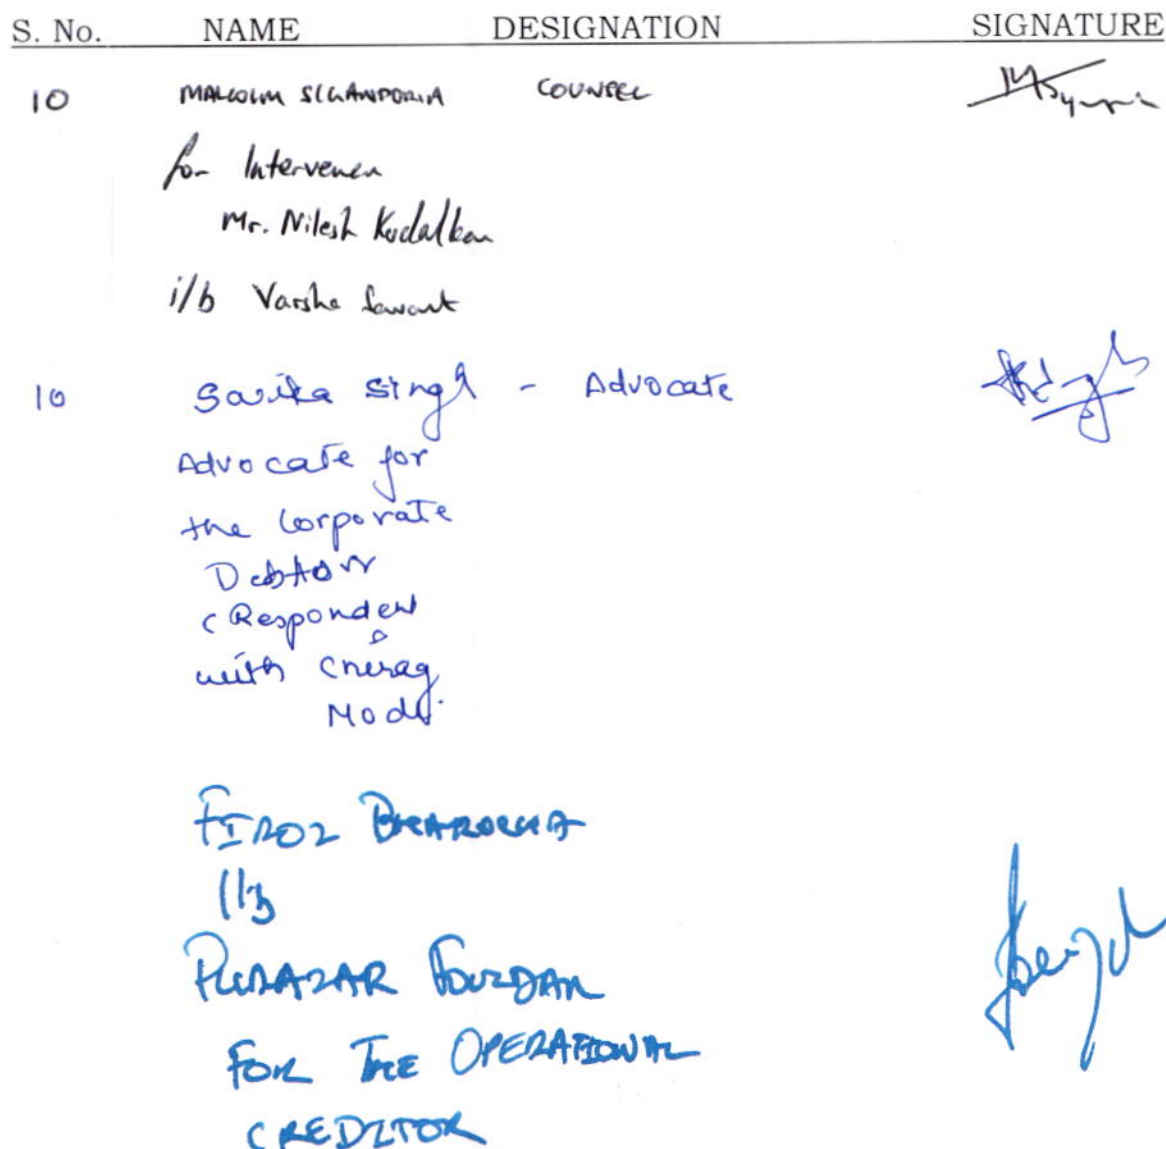 S. No. NAME DESIGNATION SIGNATURE
10 MALCOLM SIGANPORIA COUNSEL
for Intervener
Mr. Nilesh Kudalkar
i/b Varsha Sawant
10 Sarika Singh - Advocate
Advocate for
the Corporate
Debtor
(Respondent
with Chirag
Modi.
FIROZ BHARUCHA
i/b
FOUZDAR
FOR THE OPERATIONAL
CREDITOR